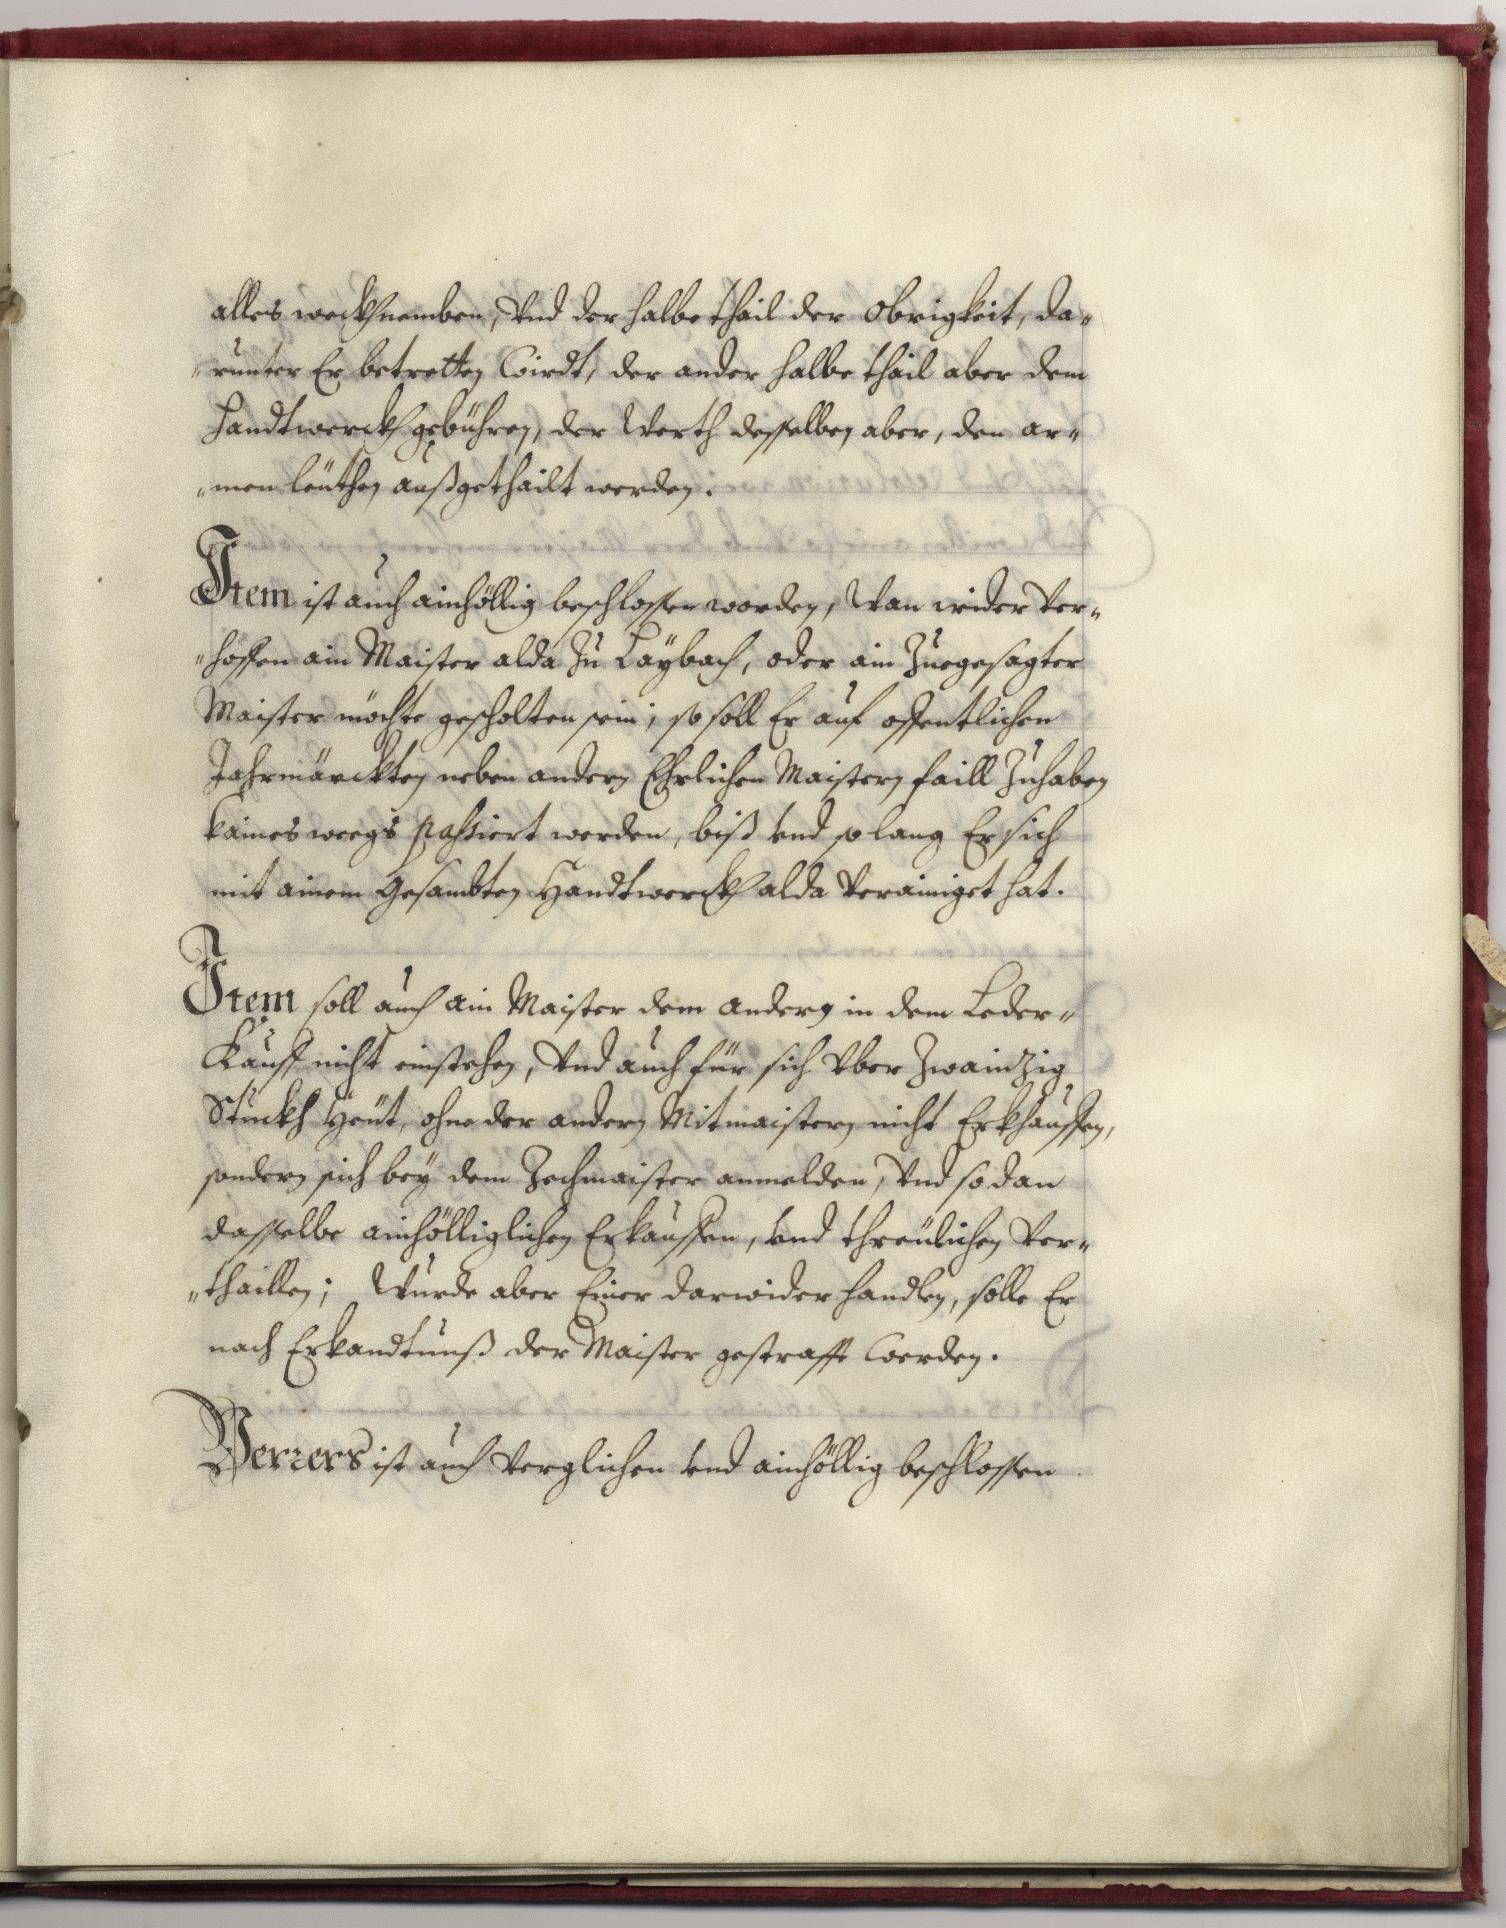 alles weckhnemben, Vnd der halbe thail der Obrigkeit, da„
„runter Er betretten Wirdt, der ander halbe thail aber dem
Handtwerckh gebühren, der Werth desselben aber, den ar„
„men leüthen außgethailt werden.
Item ist auch ainhöllig beschlossen worden, Wan wider Ver„
„hoffen ain Maister alda Zu Laÿbach, oder ain Zuegesagter
Maister möchte gescholten sein; so soll Er auf offentlichen
Jahrmärckten neben andern Ehrlichen Maistern faill Zuhaben
kaines weegs passiert werden, biß vnd so lang Er sich
mit ainem Gesambten Handtwerckh alda Verainiget hat.
Item soll auch ain Maister dem andern in dem Leder„
Kauff nicht einstehen, Vnd auch für sich Vber Zwainzig
Stuckh Heüt, ohne der andern Mitmaistern nicht Erkhauffen,
sondern sich beÿ dem Zechmaister anmelden, Vnd so dan
dasselbe ainhölliglichen Erkauffen, vnd threülichen Ver„
„thaillen; Wurde aber Einer darwider handlen, solle Er
nach Erkandtnuß der Maister gestrafft Werden.
Verrers ist auch Verglichen vnd ainhöllig beschlossen